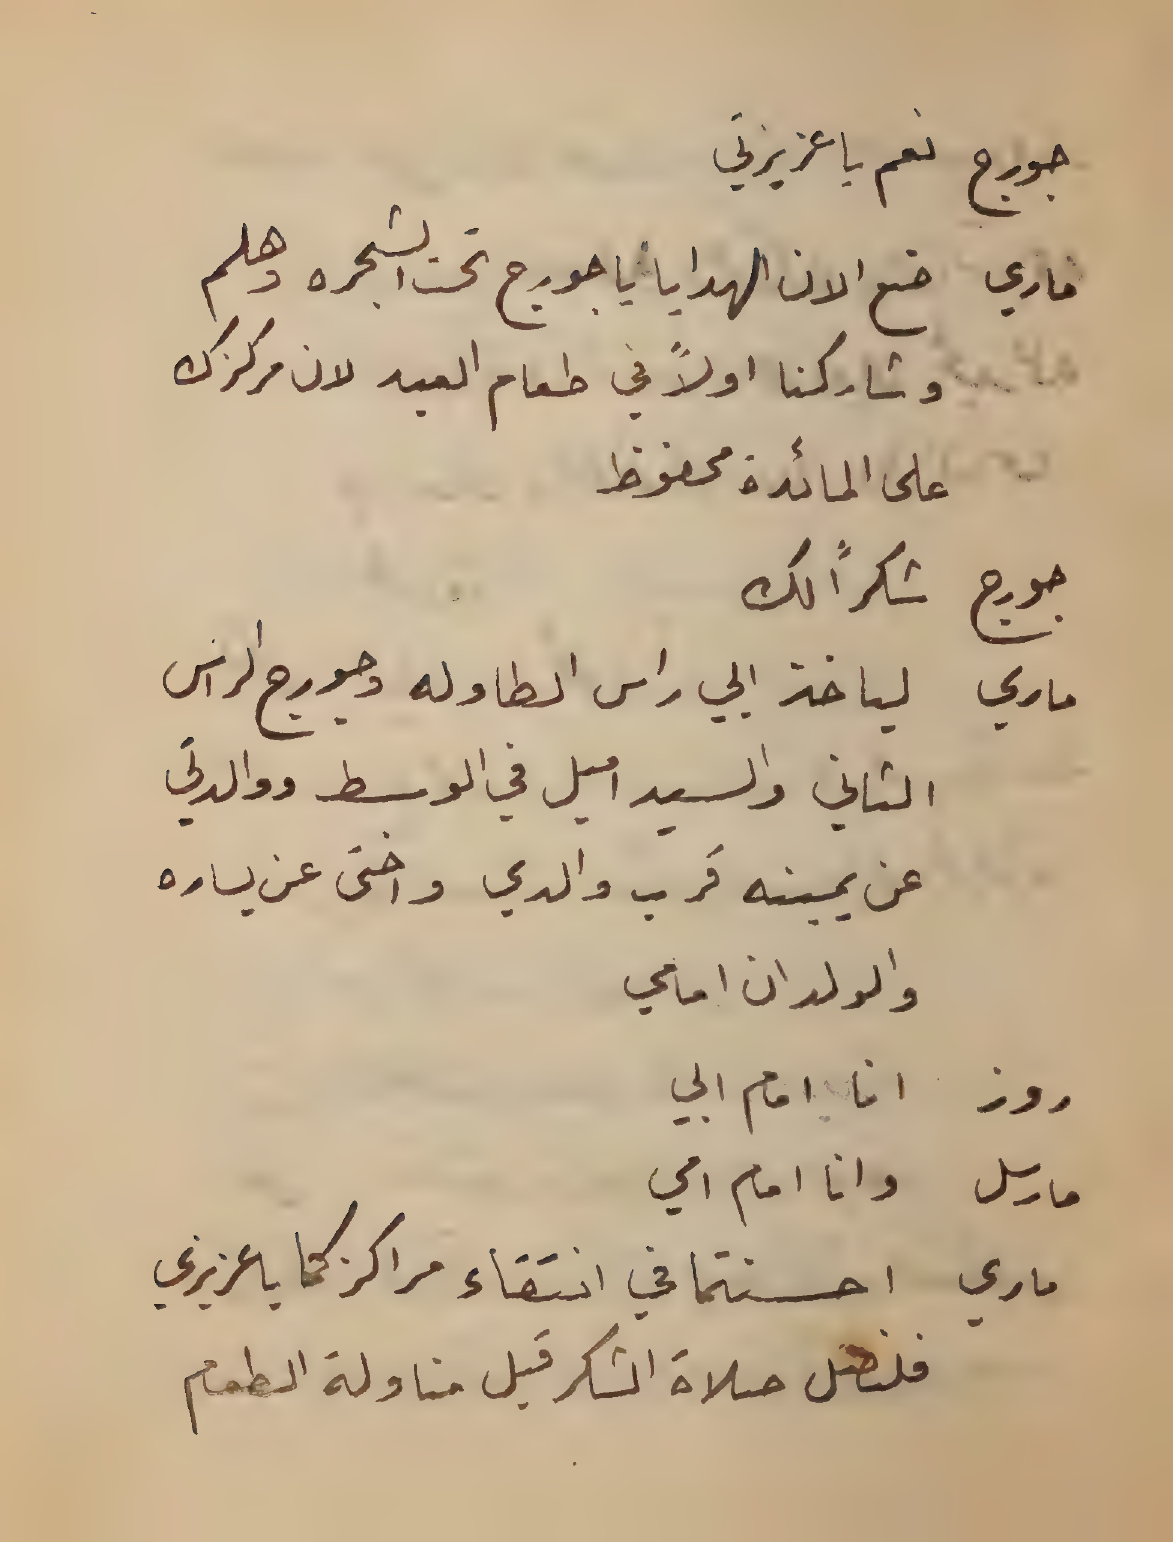 جورج نعم يا عزيزتي
ماري ضع الان الهدايا يا جورج تحت الشجره وهلم
وشاركنا اولاً في طعام العيد لان مركزك
على المائدة محفوظ
جورج شكراً لك
ماري لياخذ ابي راس الطاوله وجورج الراس
الثاني والسيد اميل في الوسط ووالدتي
عن يمينه قرب والدي واختي عن يساره
والولدان امامي
روز انا امام ابي
مارسل وانا امام امي
ماري احسنتما في انتقاء مراكزكما يا عزيزي
فلنصل صلاة الشكر قبل مناولة الطعام